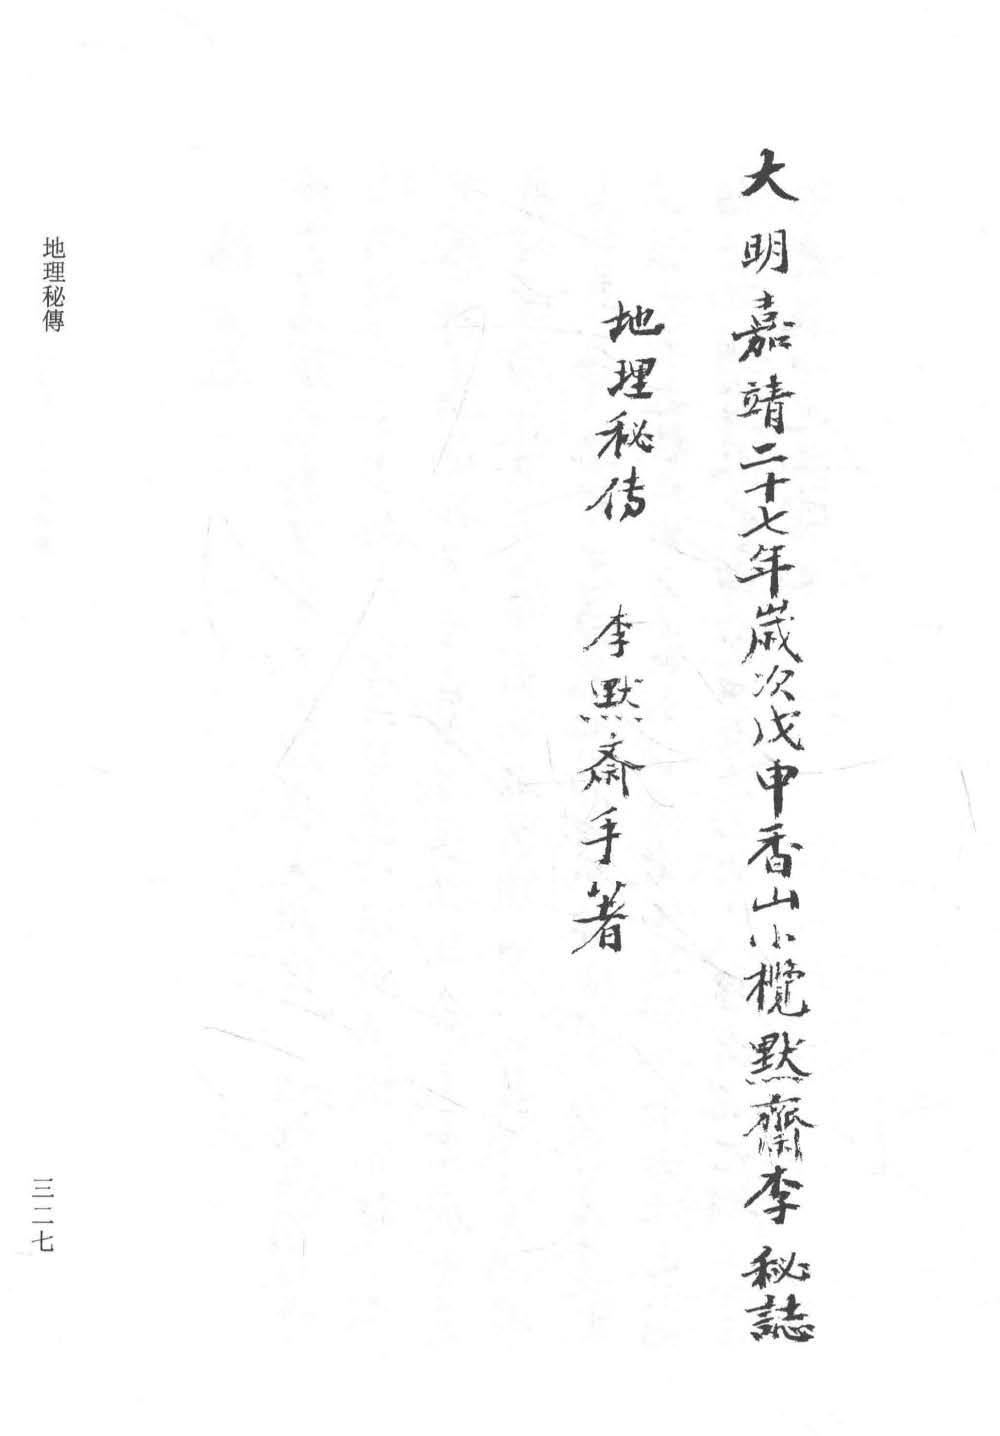 大明嘉靖二十七年歲次戊申香山小欖默齋李秘誌
地理秘传　李默斋手著
地理秘傳
三二七